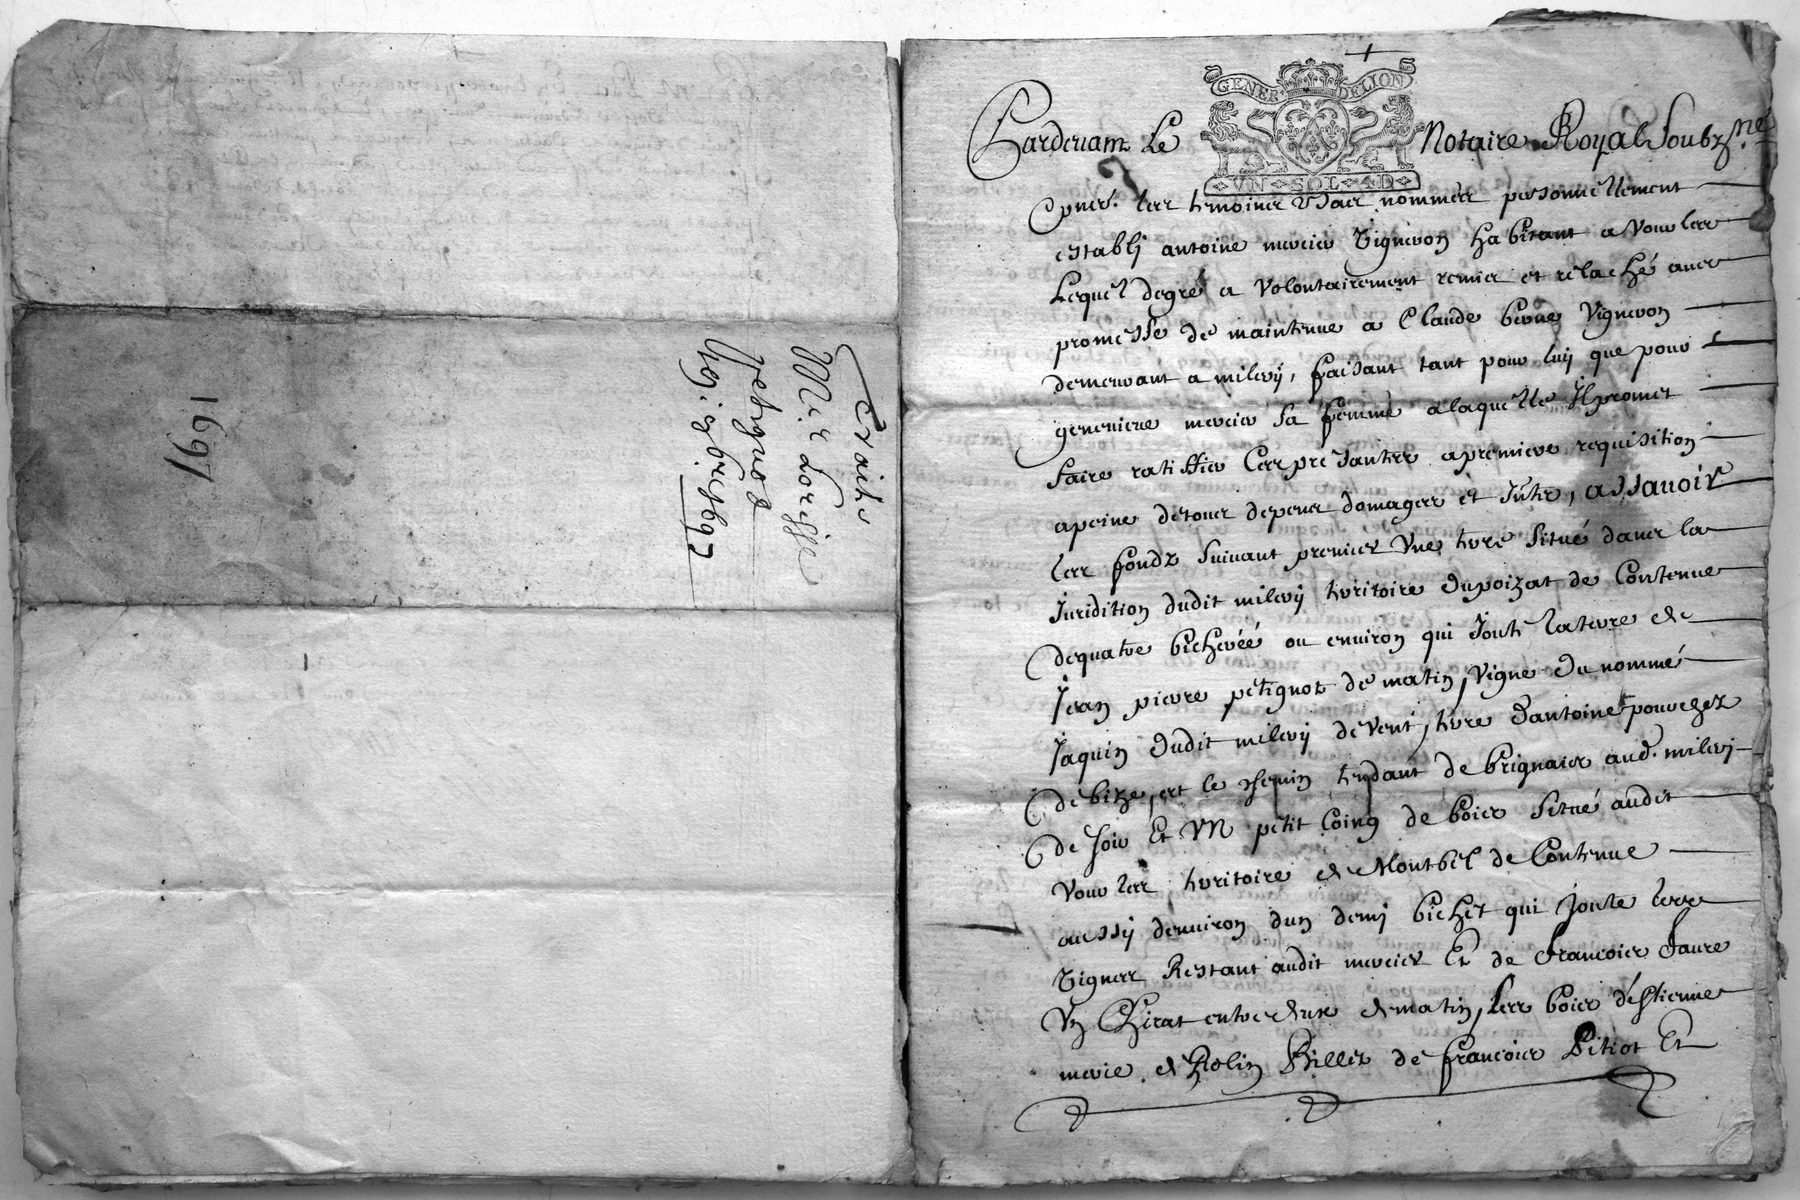 1697
Traité
Mre Loreste
petignot
1697
GENER. DE LION
VN SOL 4D
Pardevant Le Notaire Royal soubzsne
et pnes. les temoins nommes personnellement
establi antoine mercier Vigneron habitant a Vourles
Lequel degré a Volontairement remis et relaché avec
promesse de maintenue a Claude Vigneron
demeurant a milery, faisant tant pour luy que pour
genevieve mercier sa femme a laquelle Il promet
faire ratiffier Ces presantes a premiere requisition
a peine de tous depens domages et, assavoir
les fondz suivant premier Vne terre située dans la
Juridition dudit milery territoire du poizat de Contenue
de quatre bicherée ou environ qui Joute la terre de
Jean pierre petignot de matin, Vigne du nommé
Jaquin dudit milery de vent, terre d'antoine
de bize, et le chemin tendant de brignais aud. milery
de soir Et Vn petit Coing de bois situé audit
Vourles territoire de Montbel de Contenue
aussy denviron dun demy bichet qui Joute les
Vignes Restant audit mercier Et de francois faure
Vn Chirat entre deux de matin, les bois d'estienne
mercie, de de francois Pitiot Et